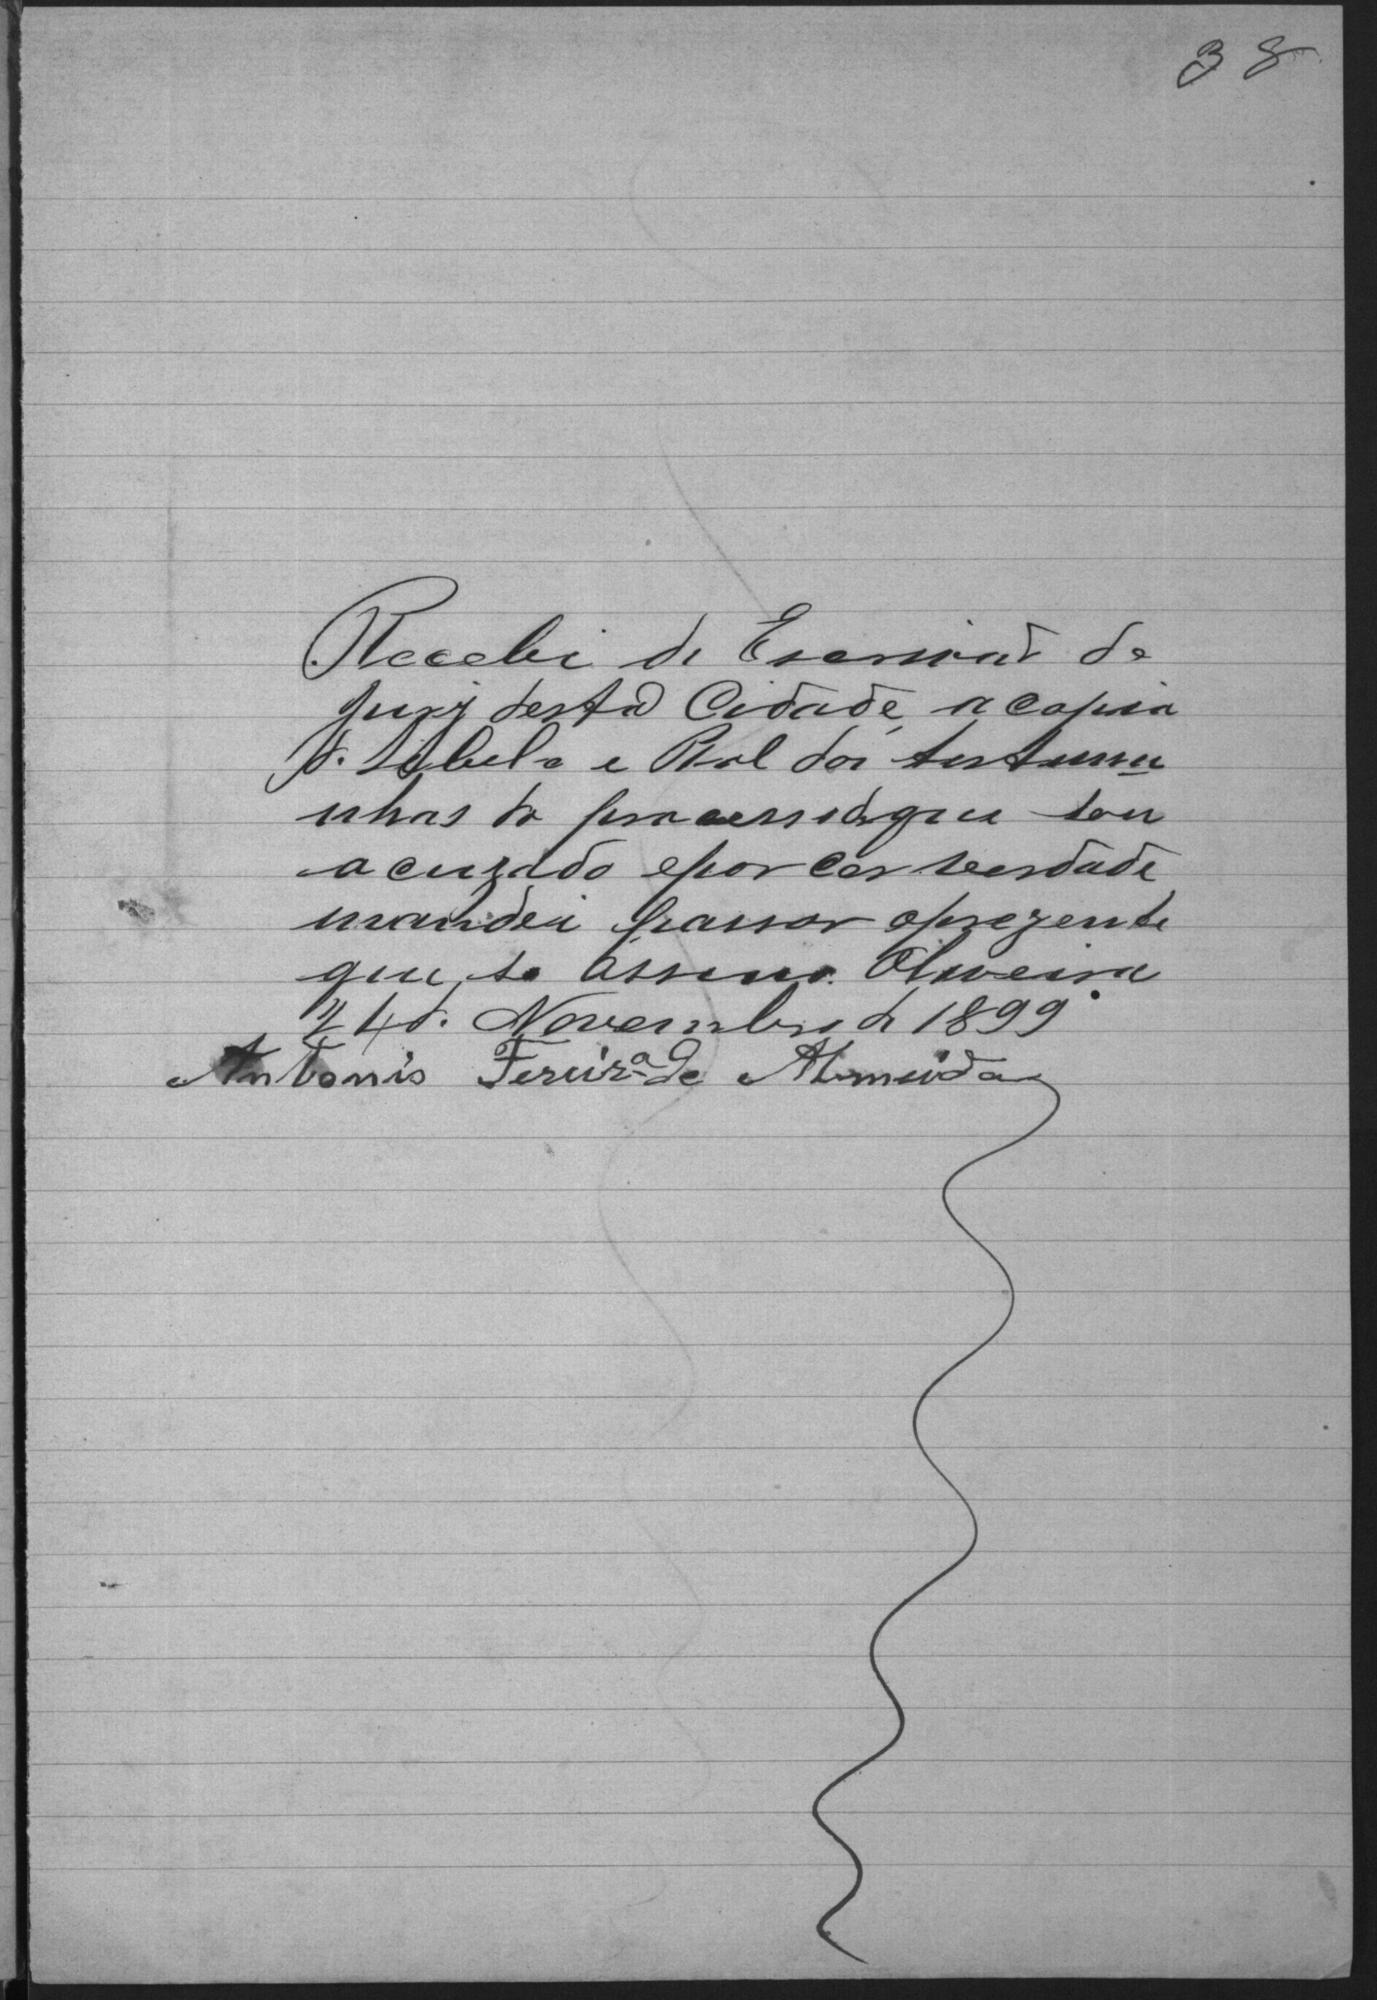 38
Recebi do Escrivão do
Jury desta Cidade, a copia
do Libelo e Rol das testemu
nhas do processo q que sou
acuzado e por ser verdade
mandei passar o prezente
que so assino. Oliveira
24 d. Novembro de 1899.
Antonio Fereira de Almeida